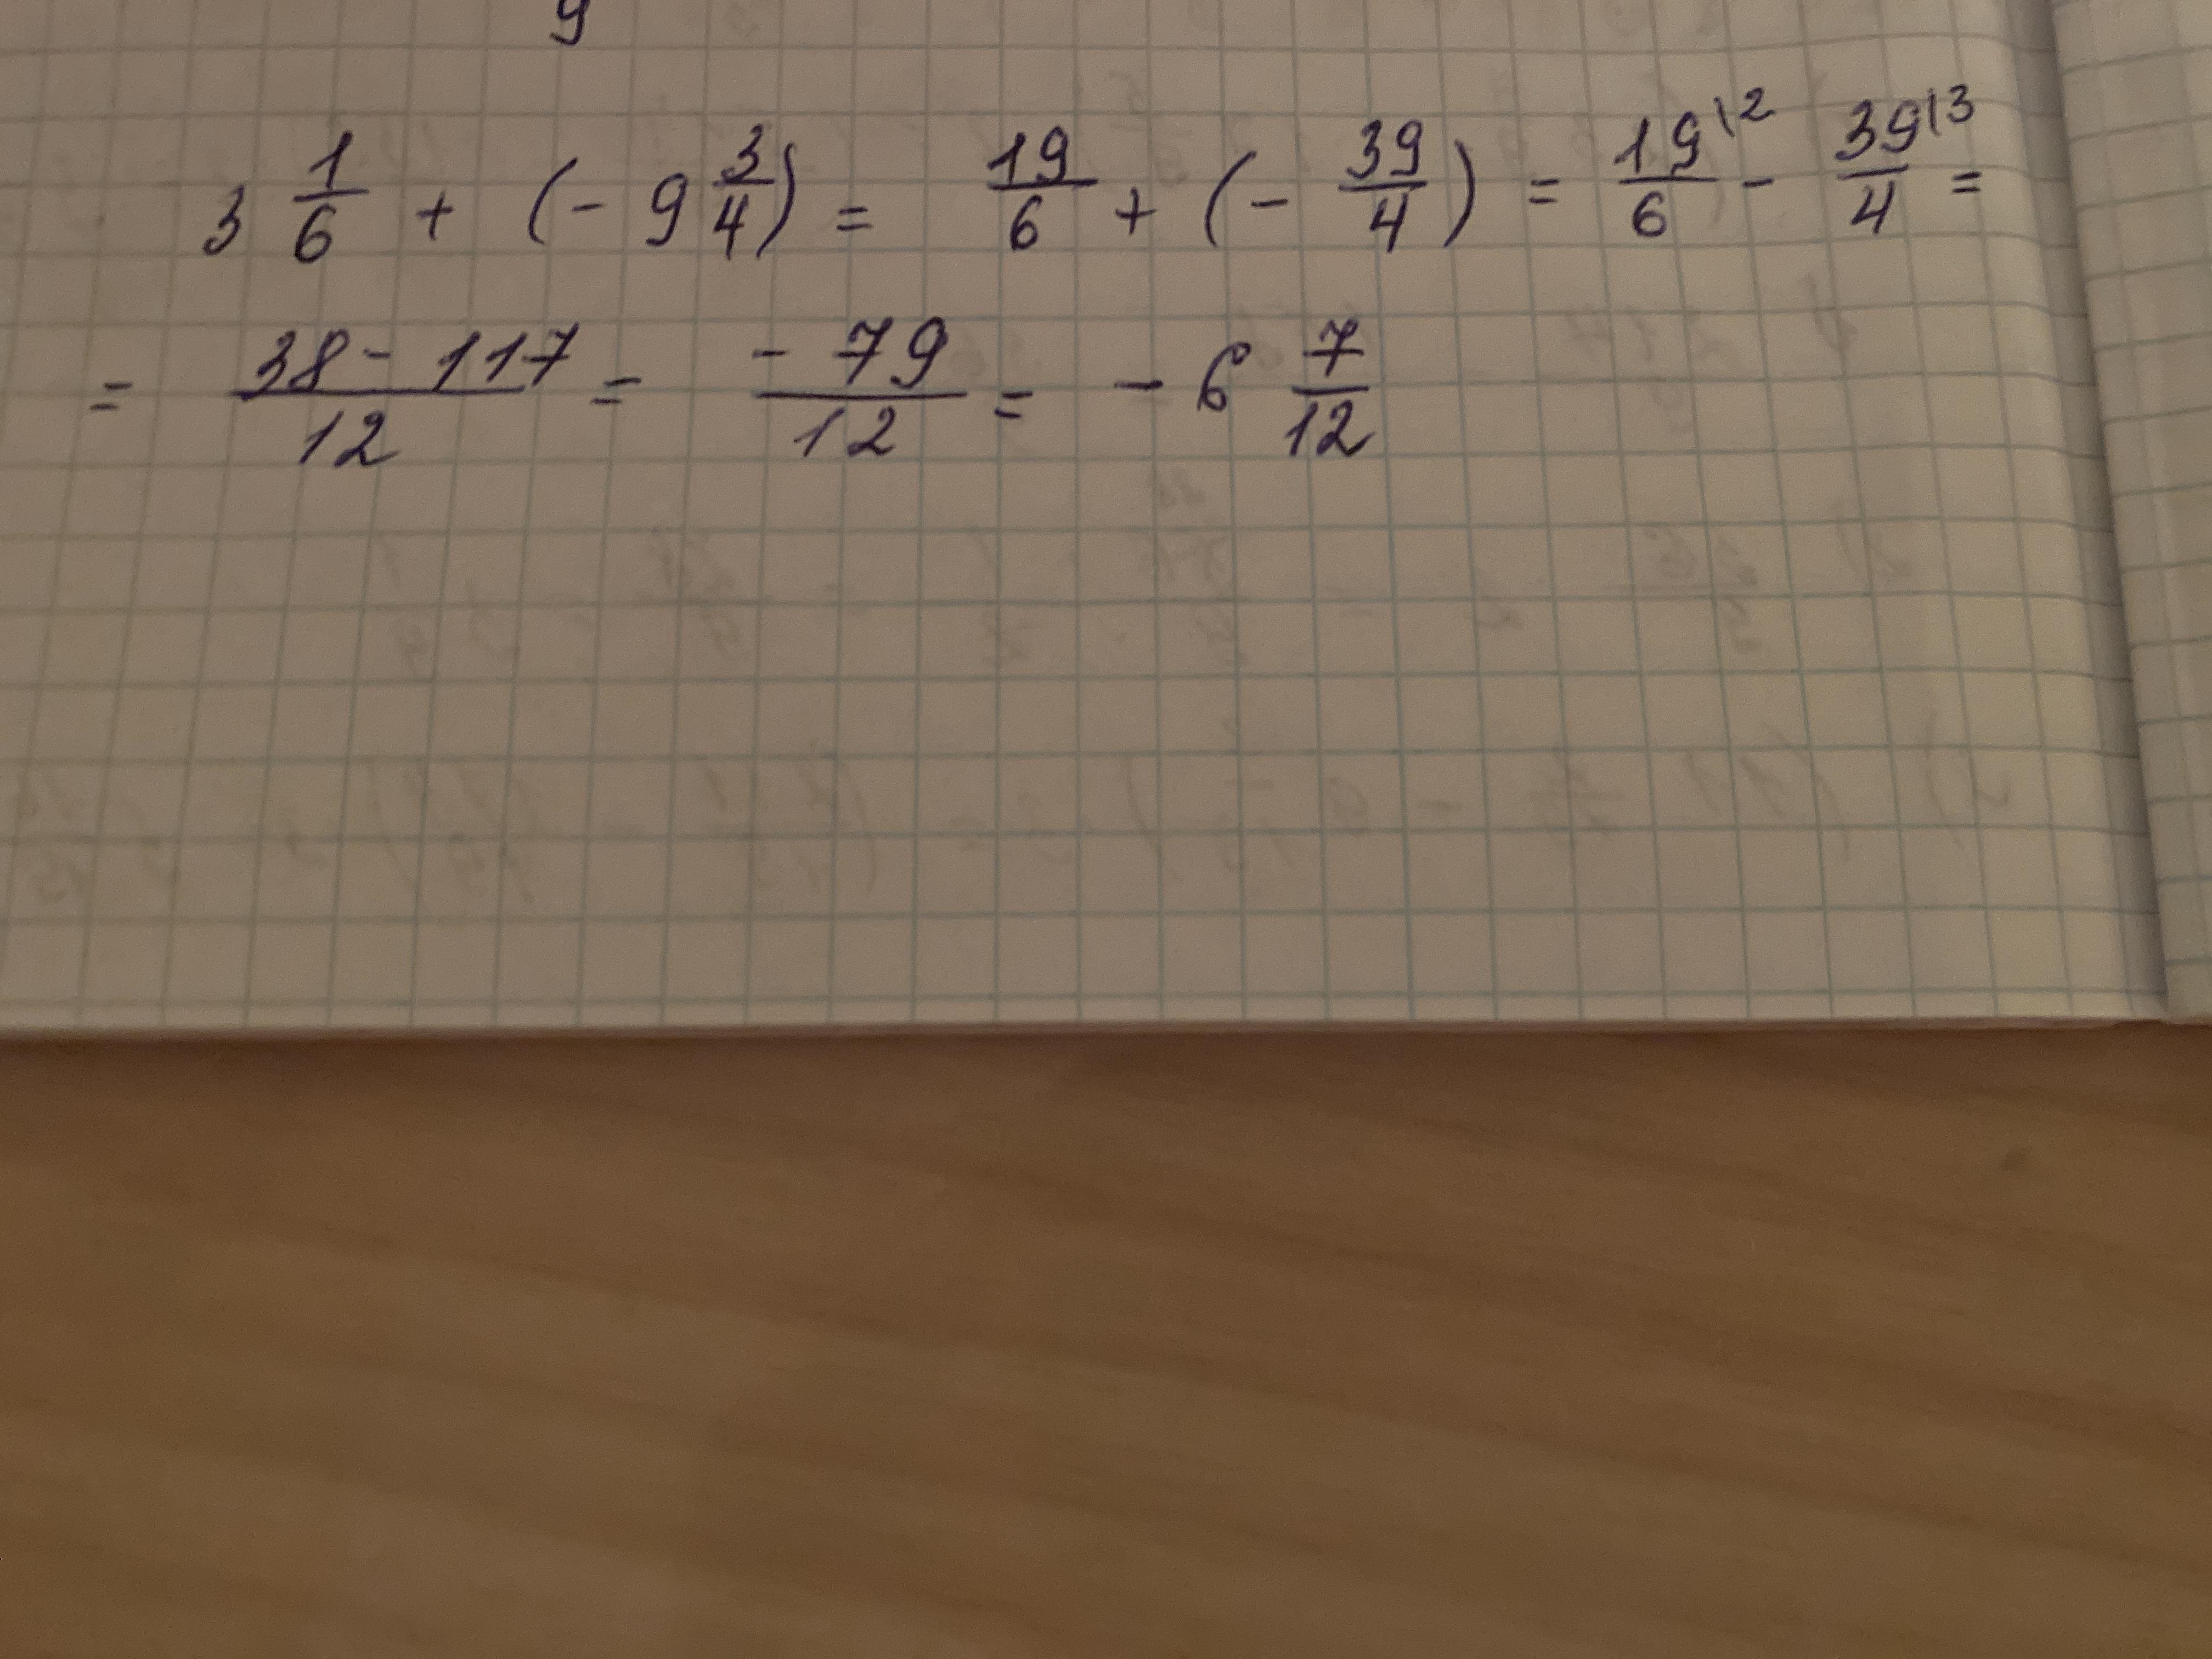 9
3 1/6 + (- 9 3/4) = 19/6 + (- 39/4) = 19\2/6 - 39\3/4 =
= 38 - 117/12 = - 79/12 = - 6 7/12